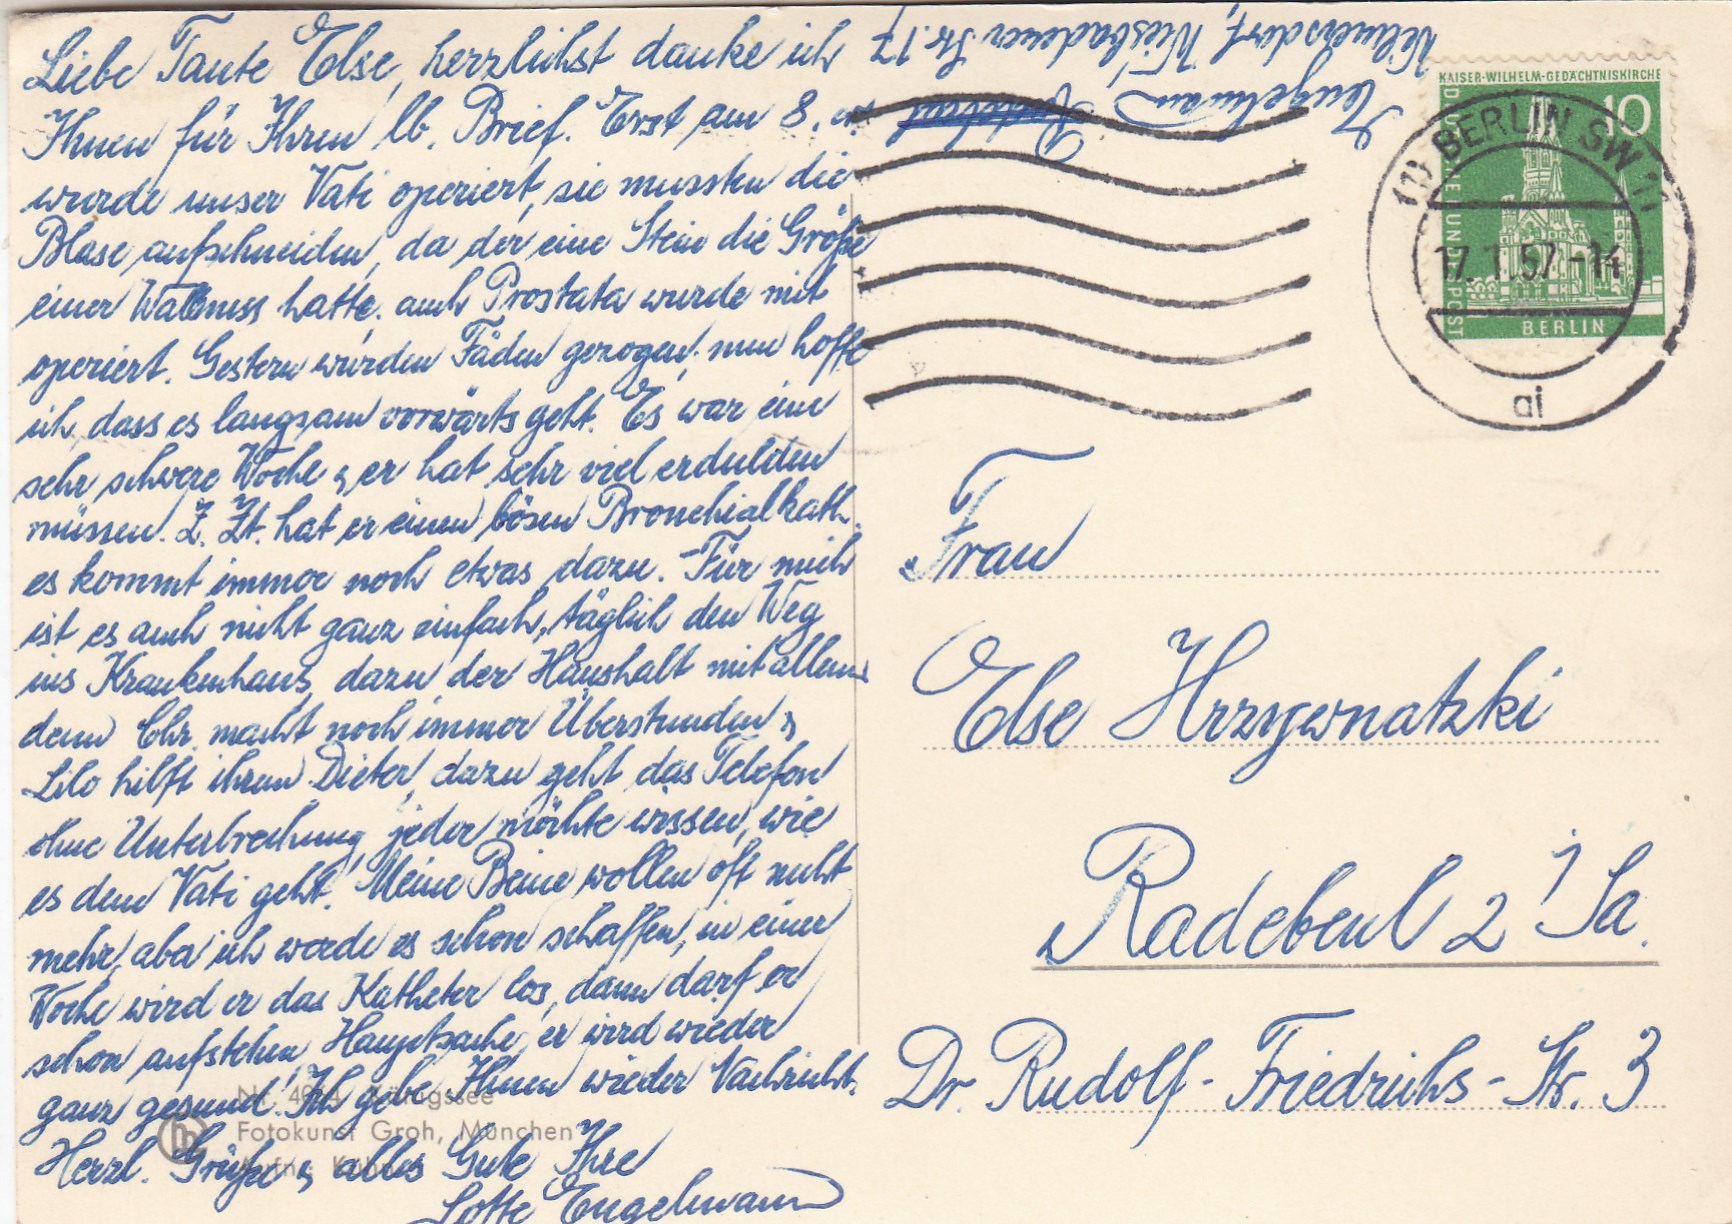 Liebe Tante Else, herzlichst danke ich
Ihnen für Ihren lb. Brief. Erst am 8. 
wurde unser Vati operiert, sie mussten die
Blase aufschneiden, da der eine Stein die Größe
einer Wallnuss hatte, auch Prostata wurde mit
operiert. Gestern wurden Fäden gezogen, nun hoffe
ich, dass es langsam vorwärts geht. Es war eine
sehr schwere Woche & er hat sehr viel erdulden
müssen. Z. Zt. hat er einen bösen Bronchialkath.
es kommt immer noch etwas dazu. Für mich
ist es auch nicht ganz einfach, täglich den Weg
ins Krankenhaus, dazu der Haushalt mit allem,
denn Chr. macht noch immer Überstunden &
Lilo hilft ihrem Dieter, dazu geht das Telefon
ohne Unterbrechung, jeder möchte wissen, wie
es dem Vati geht. Meine Beine wollen oft nicht
mehr, aber ich werde es schon schaffen, in einer
Woche wird er das Katheter los, dann darf er
schon aufstehen, Hauptsache, er wird wieder
ganz gesund. Ich gebe Ihnen wieder Nachricht.
Herzl. Grüße & alles Gute Ihre
Lotte Engelmann
Engelmann
Wilmersdorf, Wiesbadener Str. 17
KAISER-WILHELM-GEDÄCHTNISKIRCHE
10
DEUTSCHE BUNDESPOST
BERLIN
(1) BERLIN SW 11
17.1.57.-14
ai
Frau
Else Hrzygwnatzki
Radebeul 2 / Sa.
Dr. Rudolf-Friedrichs-Str. 3
Königssee
Fotokunst Groh, München